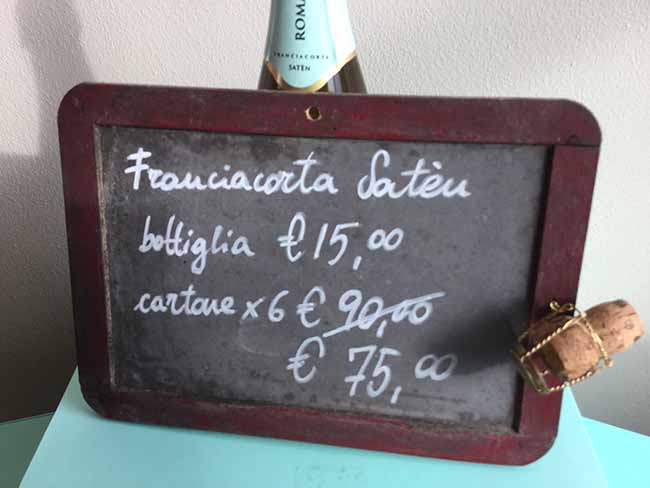 ROMA
FRANCIACORTA
SATÈN
Franciacorta Satèn
bottiglia € 15,00
cartone x 6 € 90,00
€ 75,00